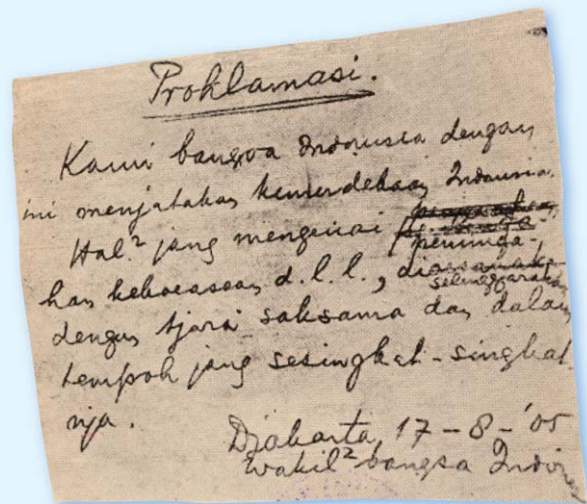 Proklamasi.
Kami bangsa Indonesia dengan
ini menjatakan kemerdekaan Indonesia.
Hal² jang mengenai peminda-
han kekoeasaan d.l.l., diselenggarakan
dengan tjara saksama dan dalam
tempoh jang sesingkat-singkat-
nja.
Djakarta, 17-8-'05
Wakil² bangsa Indon